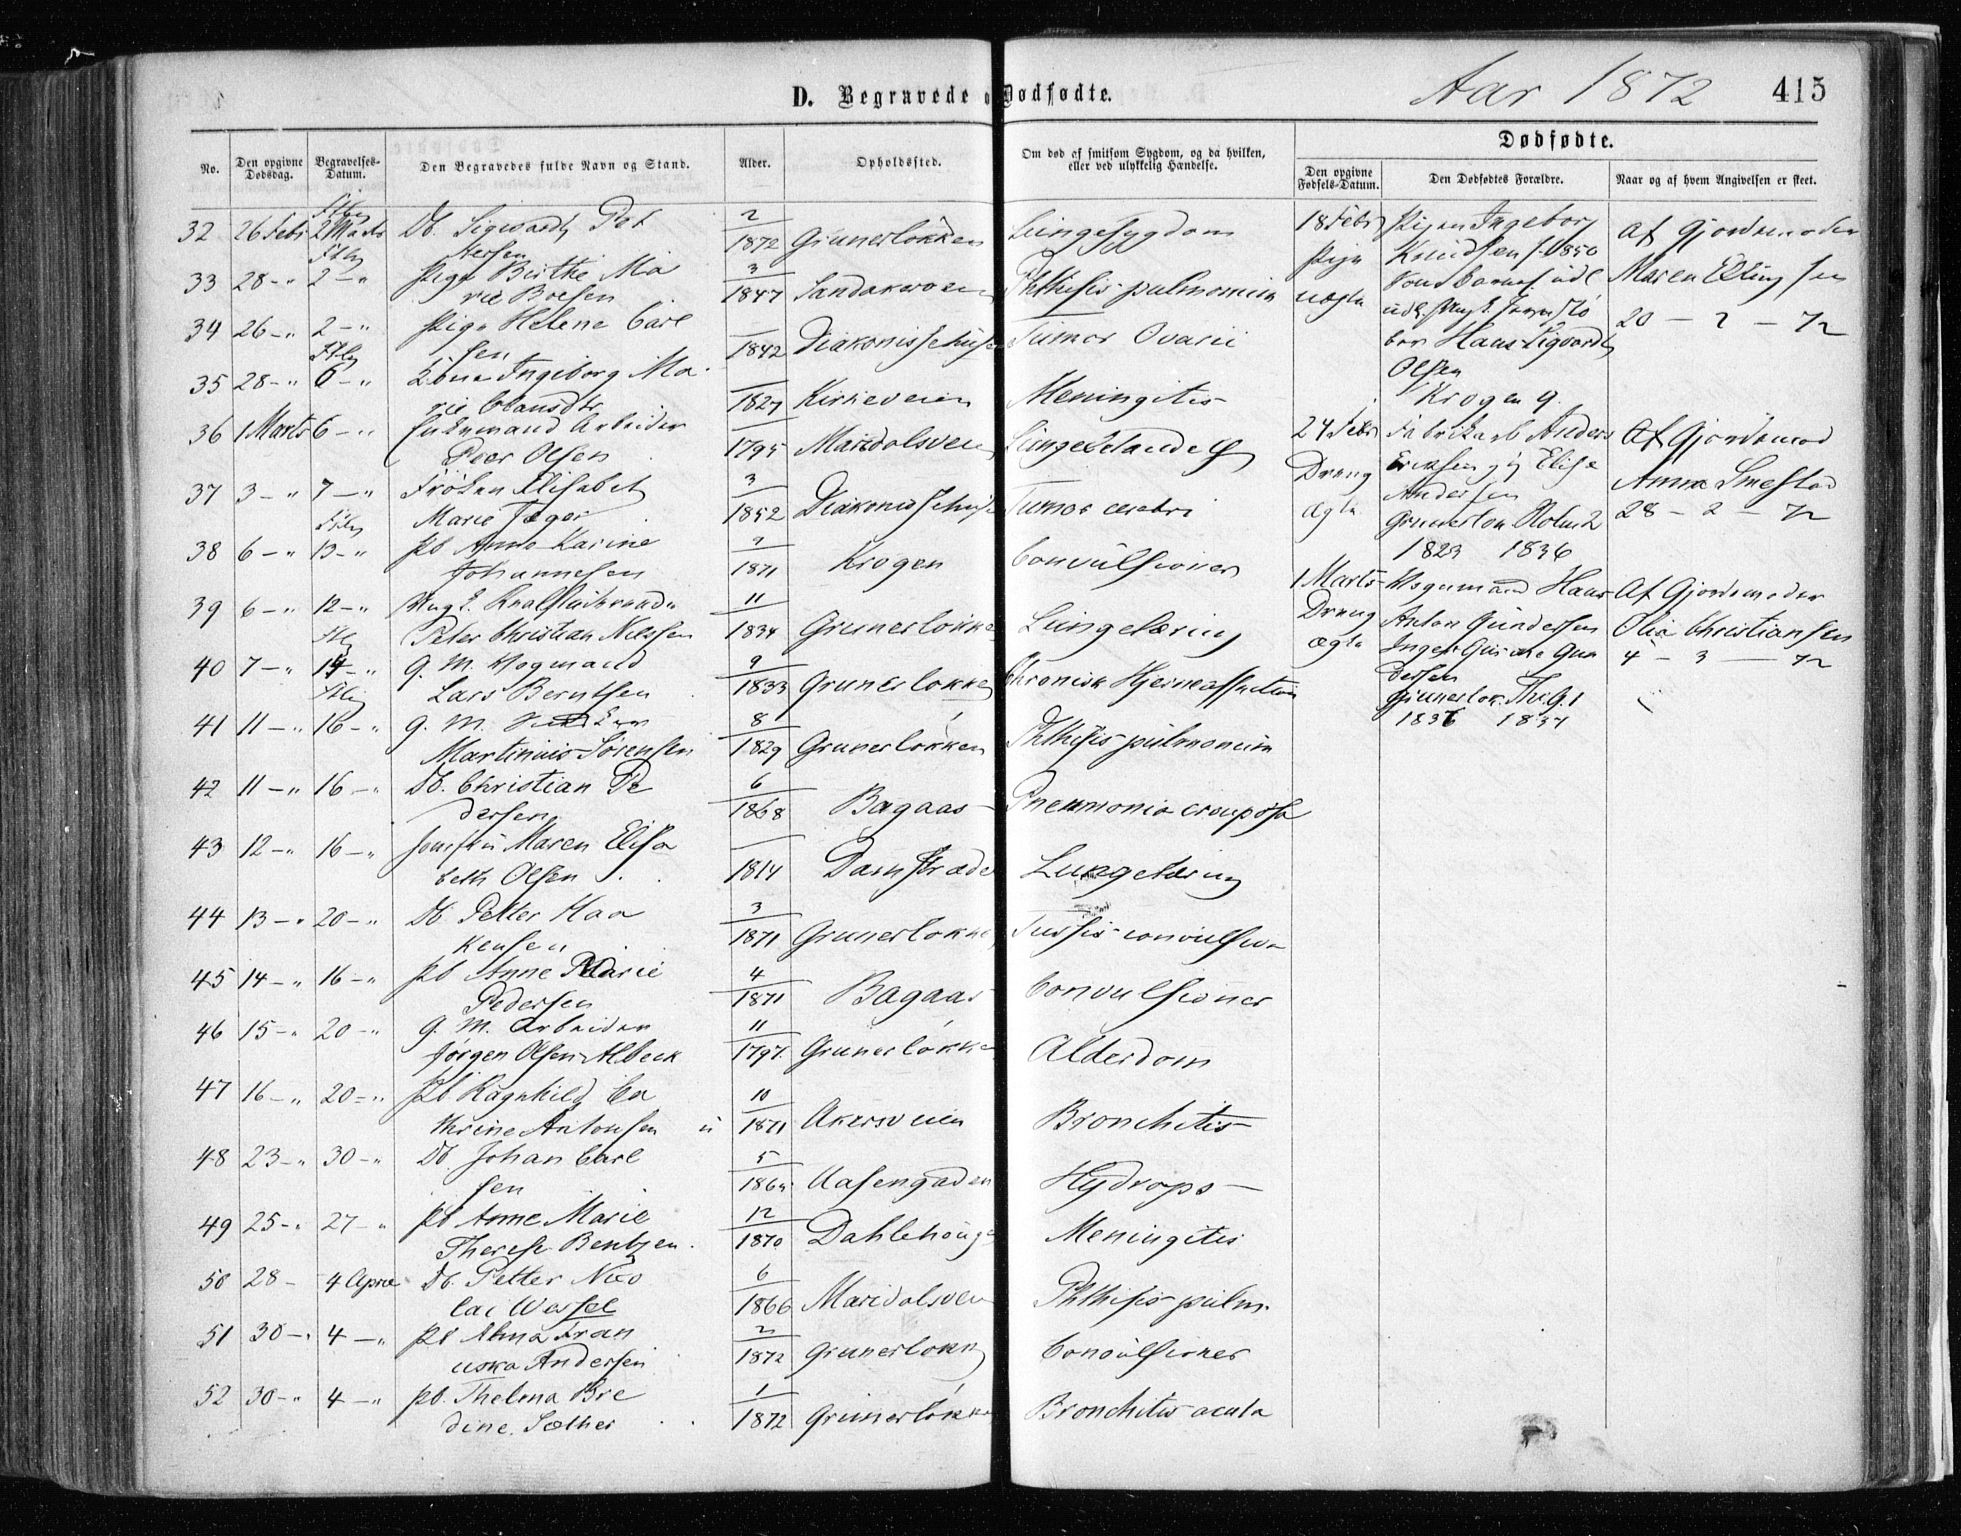 D. Begravede og Dødfødte.
Aar 1872
415
No.
Den opgivne Dødsdag.
Begravelses-Datum.
Den Begravedes fulde Navn og Stand.
Alder.
Opholdssted.
Om død af smitsom Sygdom, og da hvilken, eller ved ulykkelig Hændelse.
Dødfødte.
Den opgivne Fødsels-Datum.
Den Dødfødtes Forældre.
Naar og af hvem Angivelsen er skeet.
32 26 Febr 2 Marts Db. Sigwardt Pet
tersen 2/1872 Grunerløkken Lungesygdom
33 28 - " 2 - " Pige Birthe Ma
rie Boesen 3/1847 Sandakerveien Phthisis pulmonum
34 26 - " 2 - " Pige Helene Carl
sen 1842 Diakonissehuset Tumor Ovarii
35 28 - " 6 - " Ingeborg Ma
rie 1827 Kirkeveien Meningitis
36 1 Marts 6 - " Enkemand Arbeider
Peer Olsen 1795 Maridalsveien Lungebetændelse
37 3 - " 7 - " Frøken Elisabet
Marie Jæger 3/1852 Diakonissehuset Tumor cerebri
38 6 - " 13 - " Pb Anne Karine
Johannesen 2/1871 Krogen Convulsioner
39 6 - " 12 - "
Peter Christian Nilssen 11/1834 Grunerløkken Lungetæring
40 7 - " 14 - " G. M. Vognmand
Lars Berntsen 9/1833 Grunerløkken Chronisk
41 11 - " 16 - " G. M.
Martinius Sørensen 8/1829 Grunerløkken Phthisis pulmonum
42 11 - " 16 - " Db. Christian Pe
dersen 6/1868 Bagaas Pneumonia crouposa
43 12 - " 16 - " Jomfru Maren Elisa
beth Olsen 1814 Damstrædet Lungetæring
44 13 - " 20 - " Db. Petter Haa
kensen 3/1871 Grunerløkken Tussis convulsiva
45 14 - " 16 - " Pb Anne Marie
Pedersen 4/1871 Bagaas Convulsioner
46 15 - " 20 - " G. M. Arbeider
Jørgen Olsen Albeck 11/1797 Grunerløkken Alderdom
47 16 - " 20 - " Pb Ragnhild Ca
thrine Antonsen 10/1871 Akersveien Bronchitis
48 23 - " 30 - " Db. Johan Carl
sen 5/1864 Aasengaden Hydrops
49 25 - " 27 - " Pb Anne Marie
Therese Bentzen 12/1870 Dahlehougen Meningitis
50 28 - 4 April Db. Petter Nico
lai Wessel 6/1866 Maridalsveien Phthisis pulm.
51 30 - " 4 - " Pb Alma Fran
ciska Andersen 2/1872 Grunerløkken Convulsioner
52 30 - " 4 - " Pb. Thelma Bre
dine Sæther 1/1872 Grunerløkken Bronchitis acuta
18 Febr
Pige
uægte
Pigen Ingeborg
Knudsen f. 1850
Hans Sigvardt
Olsen
Krogen 9.
Af Gjordemoder
Maren Ellingsen
20 - 2 - 72
24 Febr
Dreng
ægte
Fabrikarb Anders
Eriksen og Elise
Andersen
Grunerløk Holm 2
1823 1836
Af Gjordemod
Anna Smestad
28 - 2 - 72
1 Marts
Dreng
ægte
Vognmand Hans
Anton Gundersen
Gun
dersen
Grunerløk. Thv.G. 1
1836 1837
Af Gjordemoder
Olia Christiansen
4 - 3 - 72